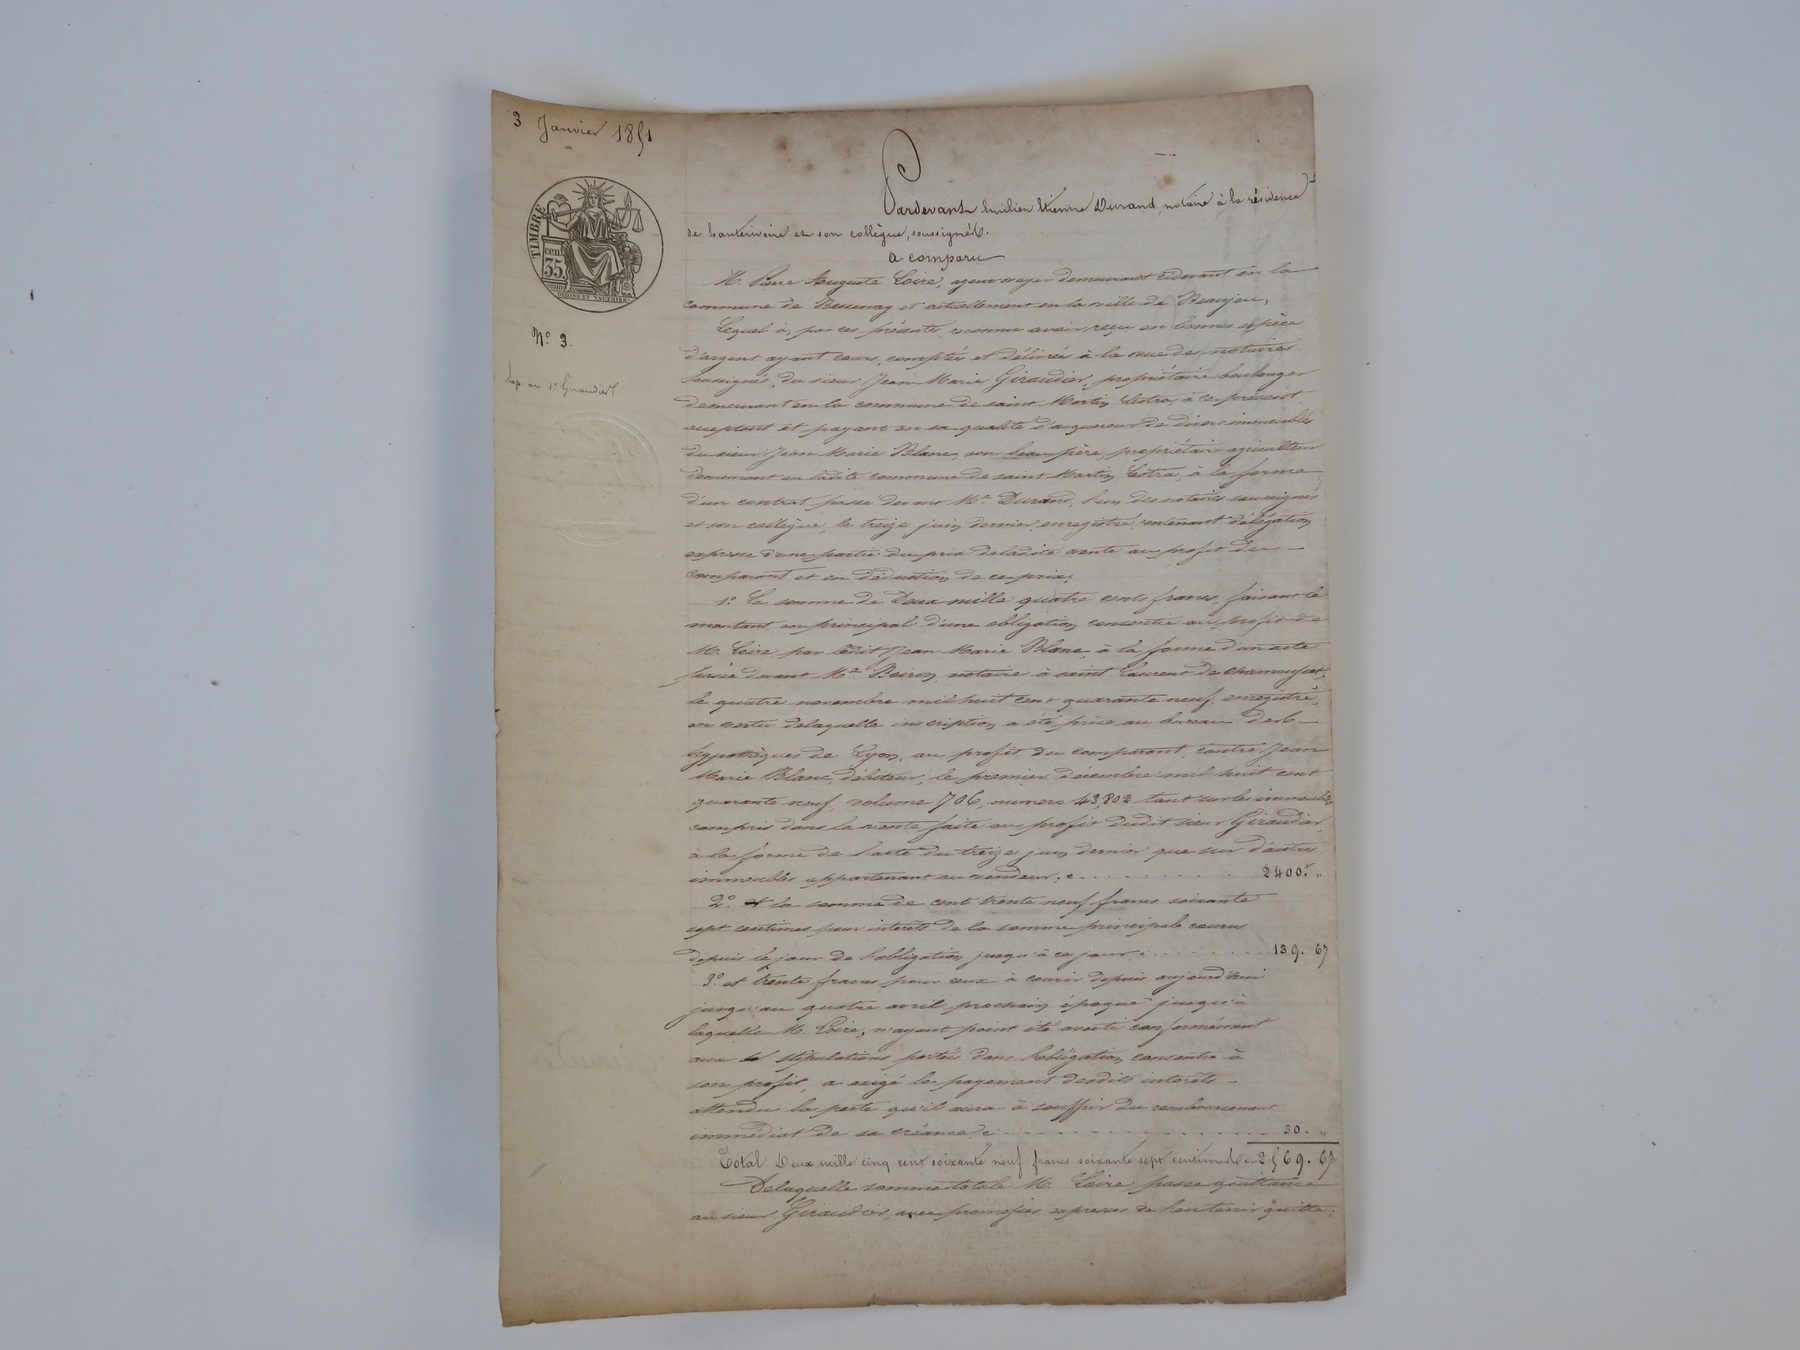 3 Janvier 1851
TIMBRE
cen.
35.
N.º 3.
Pardevant Etienne Durand, notaire à la résidence
de hauterivoire et son collègue, soussignés.
a comparu
M. Pierre Auguste Loire, agent voyer demeurant cidevant en la
commune de et actuellement en la ville de Beaujeu,
Lequel a, par ces présentes, reconnu avoir reçu en bonnes espèce
d'argent ayant cours, comptés et délivrés à la vue des notaires
soussignés, du sieur Jean Marie Giraudier, propriétaire boulanger
demeurant en la commune de saint Martin Lestra, à ce présent
acceptant et payant en sa qualité d'acquereur de divers immeubles
du sieur Jean Marie Blanc, son beau père, propriétaire agriculteur
demeurant en ladite commune de saint Martin Lestra, à la forme
d'un contrat passé devant Mᵉ Durand, l'un des notaires soussignés
et son collègue, le treize juin dernier, enregistré, contenant délégation
expresse d'une partie du prix de ladite vente au profit du
comparant et en déduction de ce prix.
1º. La somme de Deux mille quatre cents francs, faisant le
montant en principal d'une obligation consentie au profit de
M. Loire par ledit Jean Marie Blanc, à la forme d'un acte
passé devant Mᵉ Boiron, notaire à saint Laurent de chamousset,
le quatre novembre mil huit cent quarante neuf, enregistré,
en vertu de laquelle inscription a été prise au bureau des
hypothèques de Lyon, au profit du comparant, contre Jean
Marie Blanc, débiteur, le premier décembre mil huit cent
quarante neuf, volume 706, numero 43,802 tant sur les immeubles
compris dans la vente faite au profit dudit sieur Giraudier,
à la forme de l'acte du treize juin dernier que sur d'autres
immeubles appartenant au vendeur, c. . . . . . . . . . 2400.ᶠ "
2º. la somme de cent trente neuf francs soixante
sept centimes pour intérêts de la somme principale courus
depuis le jour de l'obligation jusqu'à ce jour, c. . . . . . . . 139. 67
3º et trente francs pour ceux à courir depuis aujourd'hui
jusqu'au quatre avril prochain, époque jusqu'à
laquelle M. Loire, n'ayant point été averti conformément
aux stipulations portées dans l'obligation consentie à
son profit, a exigé le payement desdits intérêts
attendu la perte qu'il aura à souffrir du remboursement
immédiat de sa créance, c. . . . . . . . . . . . . 30. "
Total Deux mille cinq cent soixante neuf francs soixante sept centimes 2569. 67
De laquelle somme totale M. Loire passe quittance
au sieur Giraudier, avec promesses expresses de l'en tenir quitte.